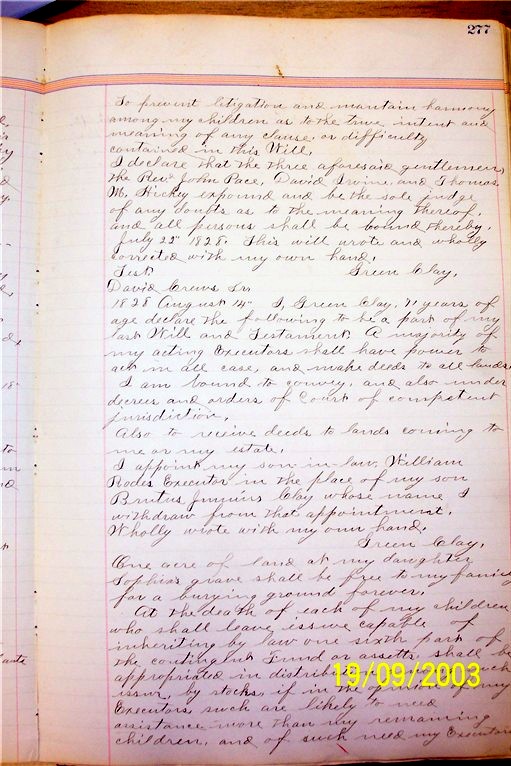 277
To prevent litigation and mantain harmony
among my children as to the true intent and
meaning of any clause or difficulty
contained in this Will.
I declare that the three aforesaid gentlemen,
the Revd John Pace, David Irvine, and Thomas
M. Hickey expound and be the sole judge
of any doubts as to the meaning thereof,
and all persons shall be bound thereby.
July 25" 1828. This will wrote and wholly
corrected with my own hand.
Test. Green Clay.
David Crews Sr.
1828 August 14" I, Green Clay, 71 years of
age declare the following to be a part of my
last Will and Testament. A majority of
my acting Executors shall have power to
act in all case, and make deeds to all lands
I am bound to convey, and also under
decrees and orders of Court of competent
jurisdiction.
Also to receive deeds to lands coming to
me or my estate.
I appoint my son in law, William
Rodes Executor in the place of my son
Brutus Junius Clay whose name I
withdraw from that appointment.
Wholly wrote with my own hand.
Green Clay.
One acre of land at my daughter
Sophia's grave shall be free to my family
for a burying ground forever.
At the death of each of my children
who shall leave issue capable of
inheriting by law one sixth part of
the contingent Fund or assetts shall be
appropriated in such
issue, by stocks, if in the of my
Executors, such are likely to need
assistance more than my remaining
children, and of such need my Executors
19/09/2003